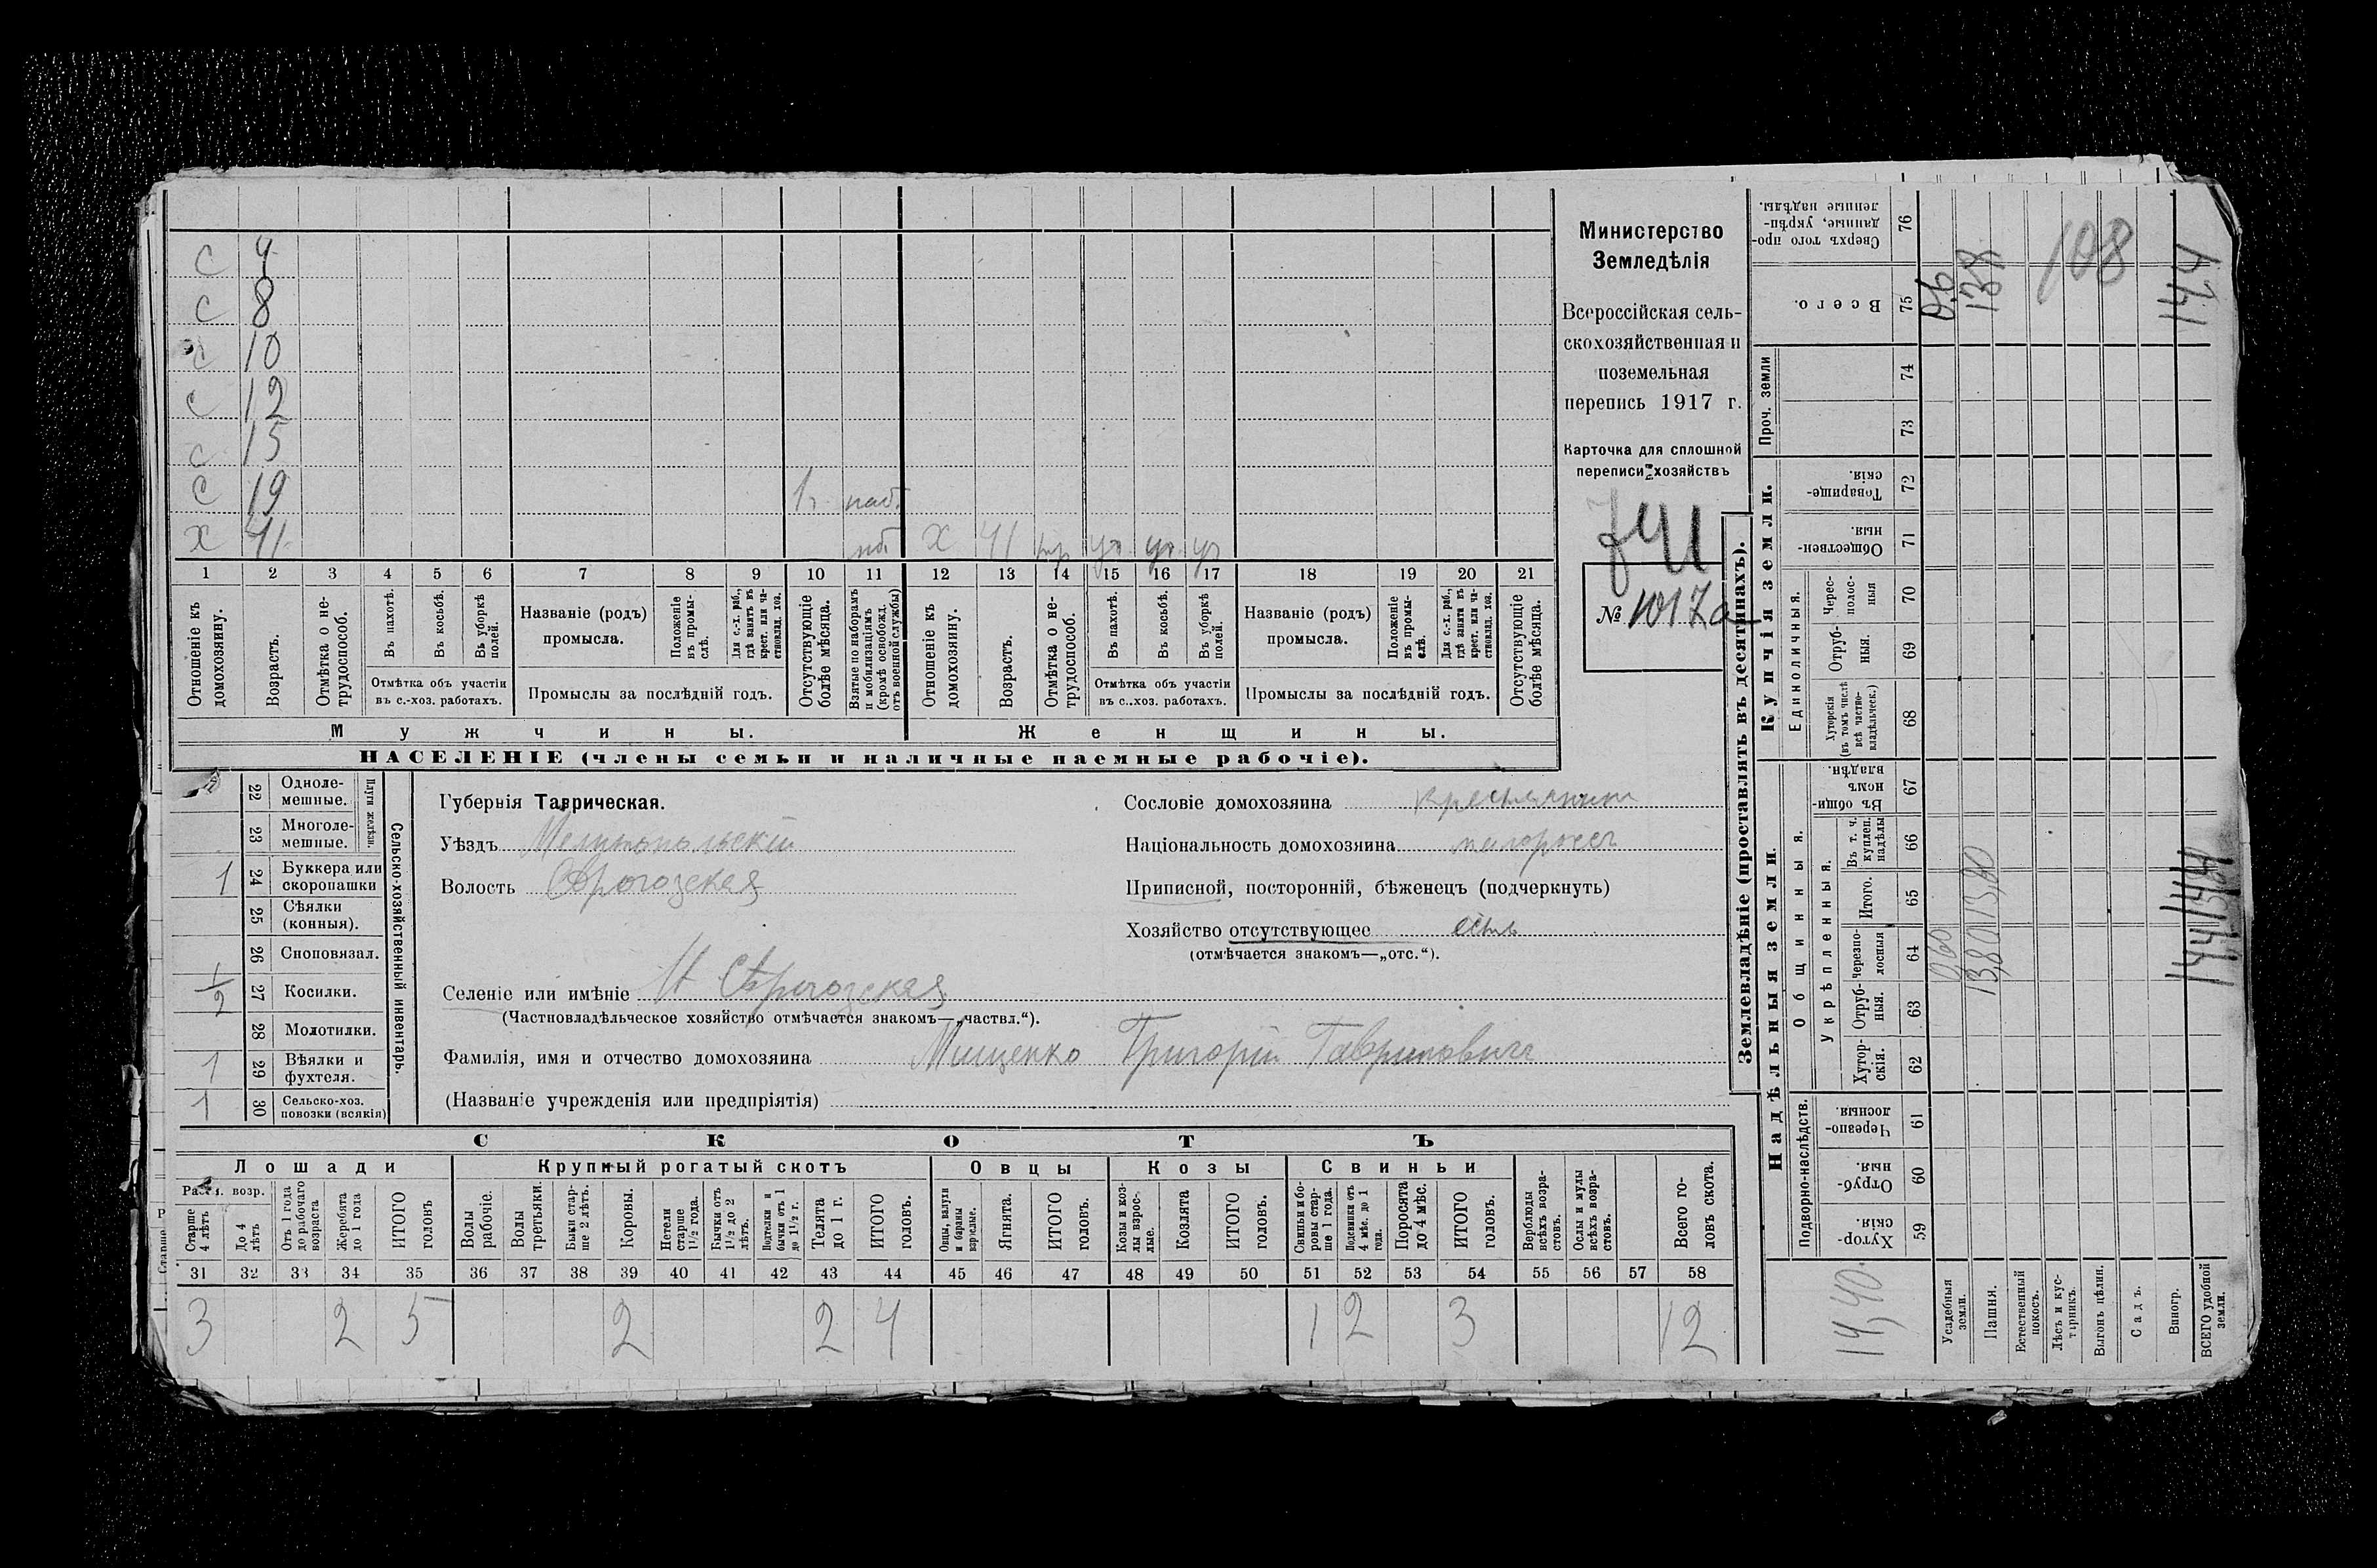 С 4
С 8
С 10
С 12
С 15
С 19 наб.
Х 41 Х 41
1 2 3 4 5 6 7 8 9 10 11 12 13 14 15 16 17 18 19 20 21
Отношеніе къ домохозяину.
Возрастъ.
Отмѣтка о нетрудоспособ.
Въ пахотѣ.
Въ косьбѣ.
Въ уборкѣ полей.
Отмѣтка объ участіи
въ с.-хоз. работахъ.
Названіе (родъ)
промысла.
Положеніе въ промыслѣ.
Для с.-х. раб., гдѣ занятъ въ крест. или частновлад. хоз.
Промыслы за послѣдній годъ.
Отсутствующіе болѣе мѣсяца.
Взятые по наборамъ и мобилизаціямъ (кромѣ освобожд. отъ военной службы)
Отношеніе къ домохозяину.
Возрастъ.
Отмѣтка о нетрудоспособ.
Въ пахотѣ.
Въ косьбѣ.
Въ уборкѣ полей.
Отмѣтка объ участіи
въ с.-хоз. работахъ.
Названіе (родъ)
промысла.
Положеніе въ промыслѣ.
Для с.-х. раб., гдѣ занятъ въ крест. или частновлад. хоз.
Промыслы за послѣдній годъ.
Отсутствующіе болѣе мѣсяца.
Мужчины. Женщины.
НАСЕЛЕНІЕ (члены семьи и наличные наемные рабочіе).
Министерство
Земледѣлія
Всероссійская сель-
скохозяйственная и
поземельная
перепись 1917 г.
Карточка для сплошной
переписи хозяйствъ
№ 1017а
Сельско-хозяйственный инвентарь.
Плуги желѣзн.
22 Одноле-
мешные.
23 Многоле-
мешные.
1 24 Буккера или
скоропашки
25 Сѣялки
(конныя).
26 Сноповязал.
1/2 27 Косилки.
28 Молотилки.
1 29 Вѣялки и
фухтеля.
1 30 Сельско-хоз.
повозки (всякія)
Губернія Таврическая.
Уѣздъ Мелитопольскій
Волость
Сословіе домохозяина крестьянинъ
Національность домохозяина малороссъ
Приписной, посторонній, бѣженецъ (подчеркнуть)
Хозяйство отсутствующее есть
(отмѣчается знакомъ—„отс.“).
Селеніе или имѣніе
(Частновладѣльческое хозяйство отмѣчается знакомъ—„частвл.“).
Фамилія, имя и отчество домохозяина Мищенко Григорій Гавриловичъ
(Названіе учрежденія или предпріятія)
СКОТЪ
Лошади Крупный рогатый скотъ Овцы Козы Свиньи
Рабоч. возр.
Старше 4 лѣтъ
До 4 лѣтъ
Отъ 1 года до рабочаго возраста
Жеребята до 1 года
ИТОГО головъ
Волы рабочіе.
Волы третьяки.
Быки старше 2 лѣтъ.
Коровы.
Нетели старше 1 1/2 года.
Бычки отъ 1 1/2 до 2 лѣтъ.
Подтелки и бычки отъ 1 до 1 1/2 г.
Телята до 1 г.
ИТОГО головъ.
Овцы, валухи и бараны взрослые.
Ягнята.
ИТОГО головъ.
Козы и козлы взрослые.
Козлята
ИТОГО головъ.
Свиньи и боровы старше 1 года.
Подсвинки отъ 4 мѣс. до 1 года.
Поросята до 4 мѣс.
ИТОГО головъ.
Верблюды всѣхъ возрастовъ.
Ослы и мулы всѣхъ возрастовъ.
Всего головъ скота.
31 32 33 34 35 36 37 38 39 40 41 42 43 44 45 46 47 48 49 50 51 52 53 54 55 56 57 58
3 2 5 2 2 4 1 2 3 12
Землевладѣніе (проставлять въ десятинахъ).
Надѣльныя земли. Купчія земли.
Подворно-наслѣдств.
Общинныя.
Укрѣпленныя.
Единоличныя.
Проч. земли
Хуторскія. 59
Отрубныя. 60
Черезполосныя. 61
Хуторскія. 62
Отрубныя. 63
Черезполосныя 64
Итого. 65
Въ т. ч. куплен. надѣлы 66
Въ общинномъ владѣн. 67
Хуторскія (въ томъ числѣ всѣ частновладѣльческ.) 68
Отрубныя. 69
Черезполосныя 70
Общественныя. 71
Товарищескія. 72
73
74
Всего. 75
Сверхъ того проданные, укрѣпленные надѣлы. 76
14,40
Усадебныя земли. 0,60 0,6
Пашня. 13,80 13,80 13,8
Естественный покосъ.
Лѣсъ и кустарникъ.
Выгонъ цѣлин.
Садъ.
Виногр.
ВСЕГО удобной земли.
108